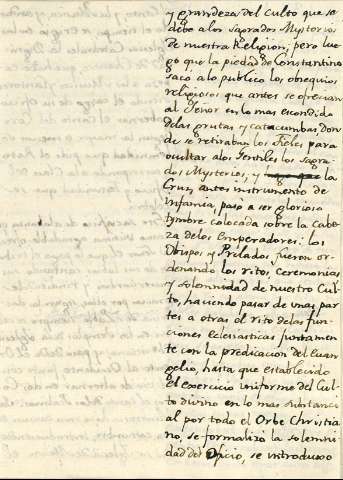 y grandeza del Culto que se
debe a los Sagrados Mysterios
de nuestra Religion; pero lue
go que la piedad de Constantino
saco alo publico los obsequios
religiosos que antes se ofrecian
al Señor en lo mas escondido
delas grutas y catacumbas, don
de se retiraban los Fieles para
ocultar alos Gentiles los Sagra
dos Mysterios, y la
Cruz, antes instrumento de
infamia, pasò a ser glorioso
tymbre colocada sobre la Cabe
za delos Emperadores: los
Obispos, y Prelados fueron or
denando los ritos, ceremonias
y solemnidad de nuestro Cul
to, haviendo pasar de unas par
tes a otras el rito delas fun
ciones Eclesiasticas juntamen
te con la predicacion del Evan
gelio, hasta que establecido
el exercicio uniforme del Cul
to divino en lo mas substanci
al por todo el Orbe Christia
no, se formalizò la solemni
dad del Oficio, se introduxo